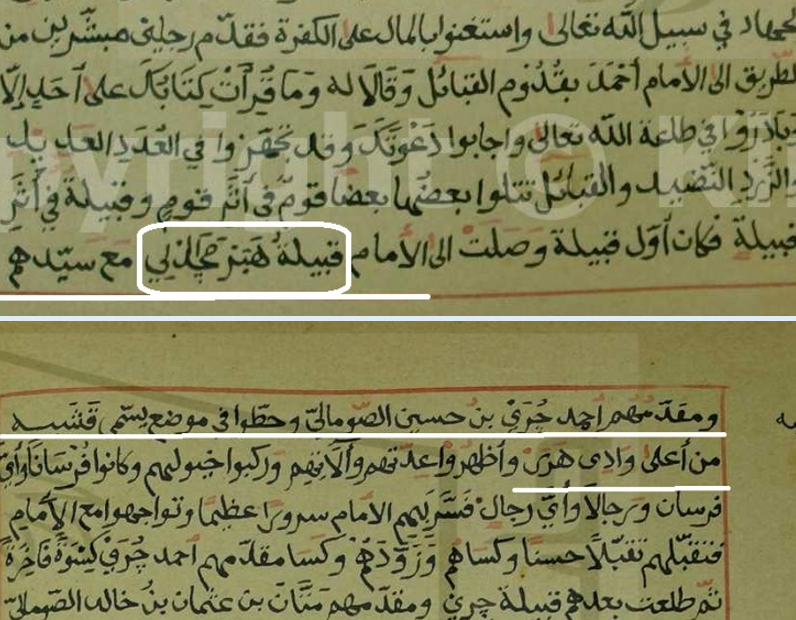 لجهاد في سبيل الله تعالى واستغنوا بالمال على الكفرة فقدّم رجلين مبشّرين من
لطريق الى الأمام أحمد بقُدُوم القبائل وَقَالاَ له وَمَا قَرَأْتَ كِتَابُكَ على أحَدٍ إلّا
وَبَادَرُوا في طاعة الله تعالى واجابوا دَعْوَتَكَ وقد تجهّزوا في العُدَدِ العديد
والزَّردِ النّضيد والقبائل تتلوا بعضُها بعضا قومٌ فى أثَر قومٍ وقبيلة في أثَر
قبيلةٍ فكان أوّل قبيلة وصلتْ الى الأمام قبيلةُ هَبَرْ مَجَّادْلي مع سيّدهم
ومقدّمهم احمد جُرَيْ بنُ حسين الصّوماليّ وحطّوا في موضع يسمّى قَسَسَه
من أعلى وَادى هَرَرْ وأظهروا عدّتهم وآلاتهم وركبوا خيولهم وكانوا فُرْسَانًا وأيّ
فرسان ورجالًا وأيّ رجال فَسُرَّ بهم الامام سرورًا عظيمًا وتواجهوا مع الإمام
فتقبّلهم تقبّلًا حسنًا وكساهُم وَزَوَّدَهُمْ وكسا مقدّمهم احمد جُرَيْ كِسْوَةً فَاخِرَةً
ثم طلعت بعدهم قبيلة جِرِيْ ومقدّمهم مَتَّان بن عثمان بنُ خالد الصّوماليّ
pyright ©